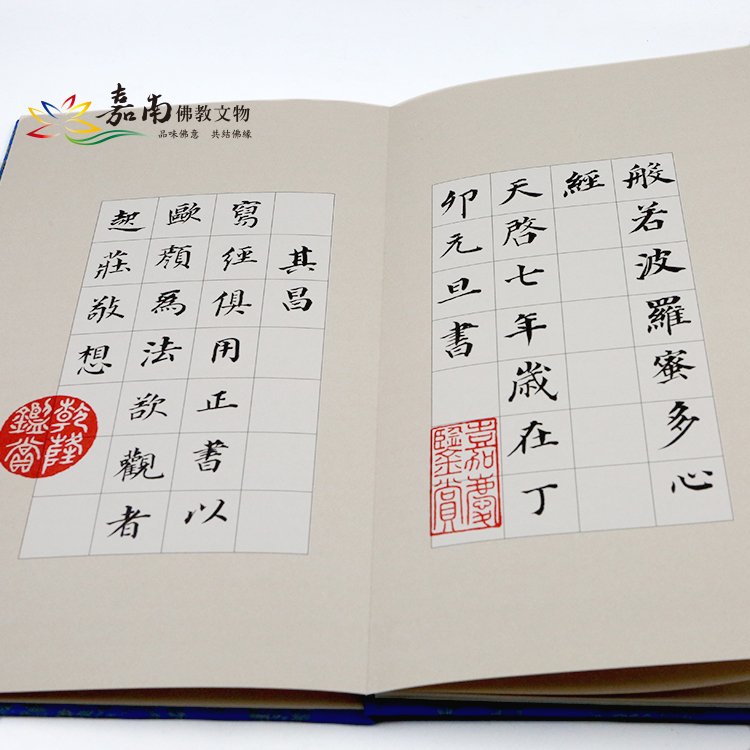 嘉南佛教文物
品味佛意 共結佛緣
般若波羅蜜多心
經
天啓七年歲在丁
卯元旦書
嘉慶鑑賞
其昌
寫經俱用正書以
歐顏爲法欲觀者
起莊敬想
乾隆鑑賞